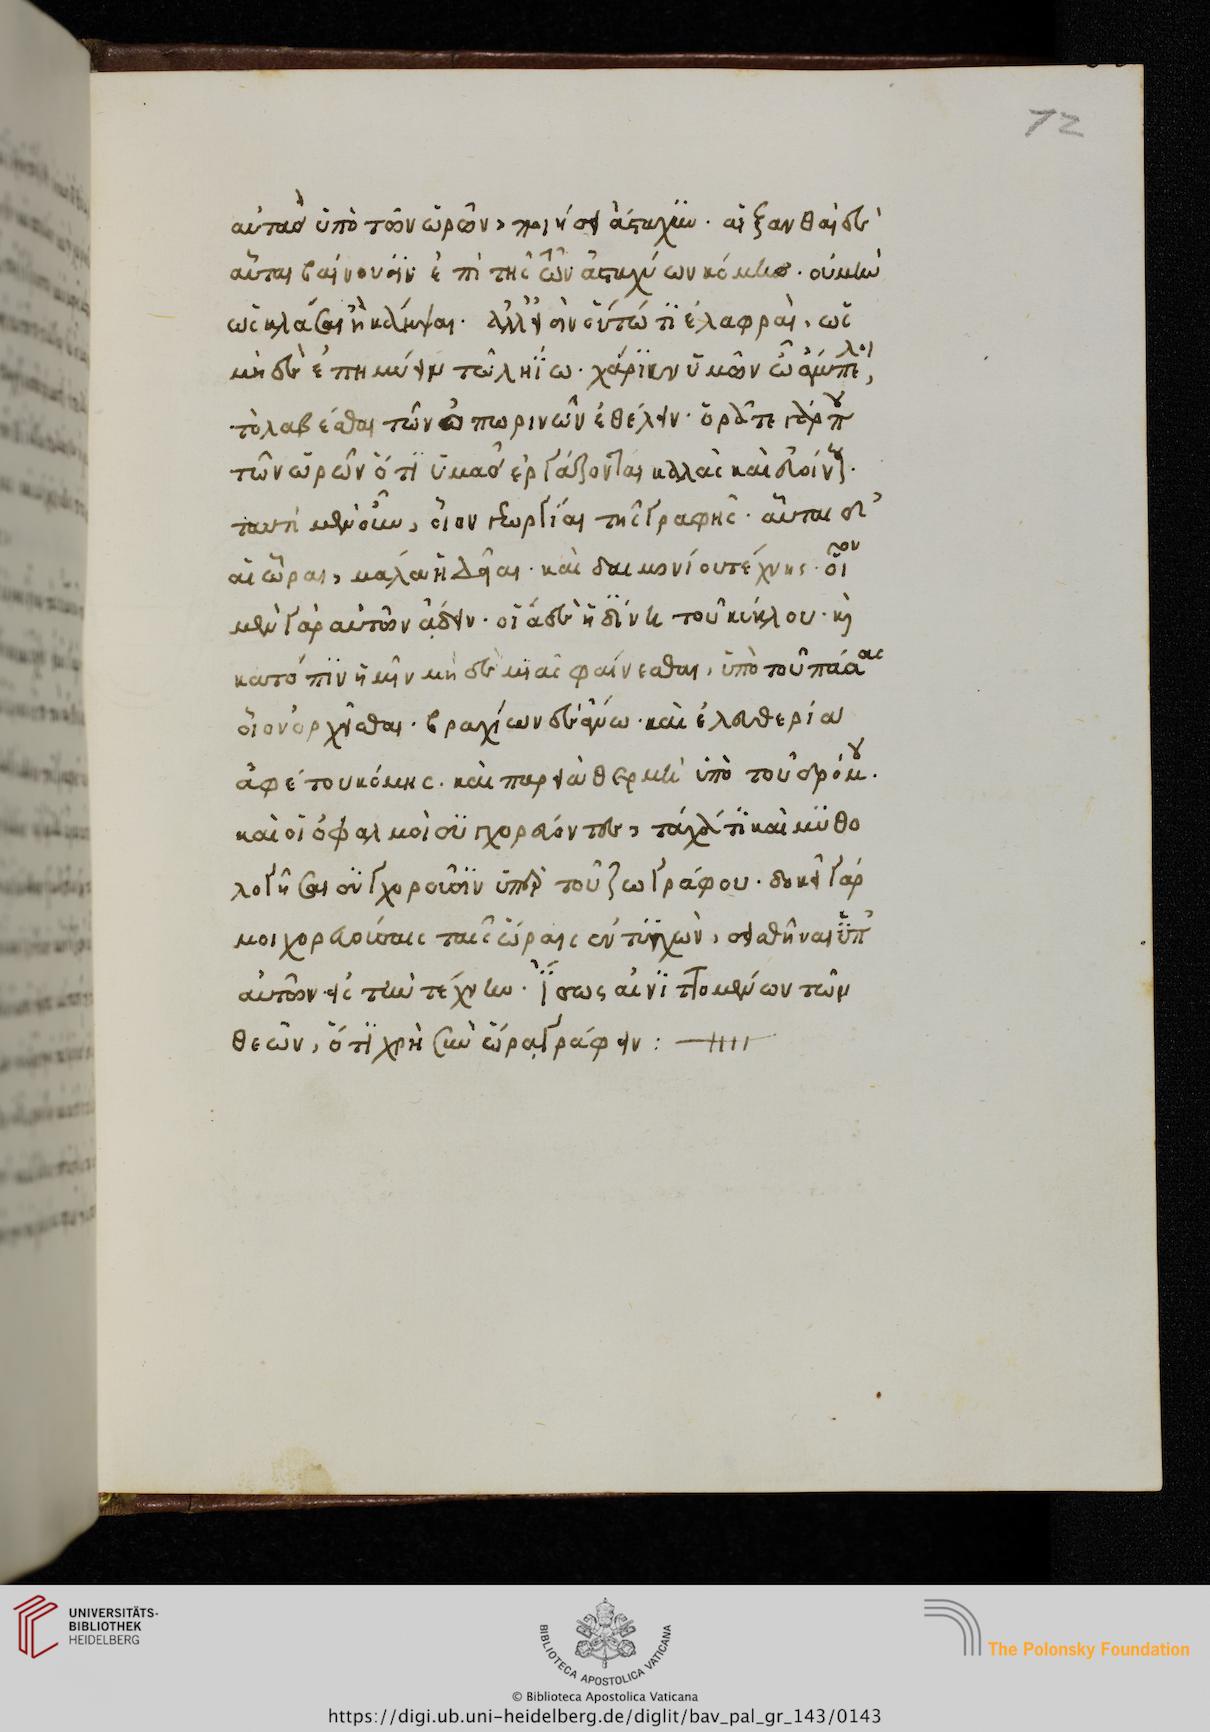 72
αὐτὰς ὑπὸ τῶν ὡρῶν, ποιήσει ἄσταχυν. αἱ ξανθαὶ δὲ
αὗται βαίνουσιν ἐπὶ τῆς τῶν ἀσταχύων κόμης. οὐ μὴν
ὡς κλάσαι ἢ κάμψαι. ἀλλ' εἰσὶν οὕτω τι ἐλαφραὶ, ὡς
μηδὲ ἐπημύειν τῷ ληΐῳ. χάριεν ὑμῶν ὦ ἄμπελοι,
τὸ λαβέσθαι τῶν ὀπωρινῶν ἐθέλειν. ὁρᾶτε γὰρ που
τῶν ὡρῶν ὅτι ὑμᾶς ἐργάζονται καλὰς καὶ ἡδυοίνους.
ταυτὶ μὲν οὖν, οἷον γεωργίαι τῆς γραφῆς. αὗται δ'
αἱ ὧραι, μάλα ἡδεῖαι. καὶ δαιμονίου τέχνης. οἷον
μὲν γὰρ αὐτῶν ᾄδειν. οἵα δὲ ἡ δίνη τοῦ κύκλου. καὶ
κατόπιν ἡμῖν μηδεμιᾶς φαίνεσθαι, ὑπὸ τοῦ πάσας
οἷον ἔρχεσθαι. βραχίων δὲ ἄνω. καὶ ἐλευθερία
ἀφέτου κόμης. καὶ παρειὰ θερμὴ ὑπὸ τοῦ δρόμου.
καὶ οἱ ὀφθαλμοὶ συγχορεύοντες, τάχα τι καὶ μυθο
λογῆσαι συγχωροῦσιν ὑπὲρ τοῦ ζωγράφου. δοκεῖ γάρ
μοι χορευούσαις ταῖς ὥραις ἐντυχὼν, σεισθῆναι ὑπ'
αὐτῶν εἰς τὴν τέχνην. ἴσως αἰνιττομένων τῶν
θεῶν, ὅτι χρὴ σὺν ὥρᾳ γράφειν:
UNIVERSITÄTS-
BIBLIOTHEK
HEIDELBERG
BIBLIOTECA APOSTOLICA VATICANA
The Polonsky Foundation
© Biblioteca Apostolica Vaticana
https://digi.ub.uni-heidelberg.de/diglit/bav_pal_gr_143/0143